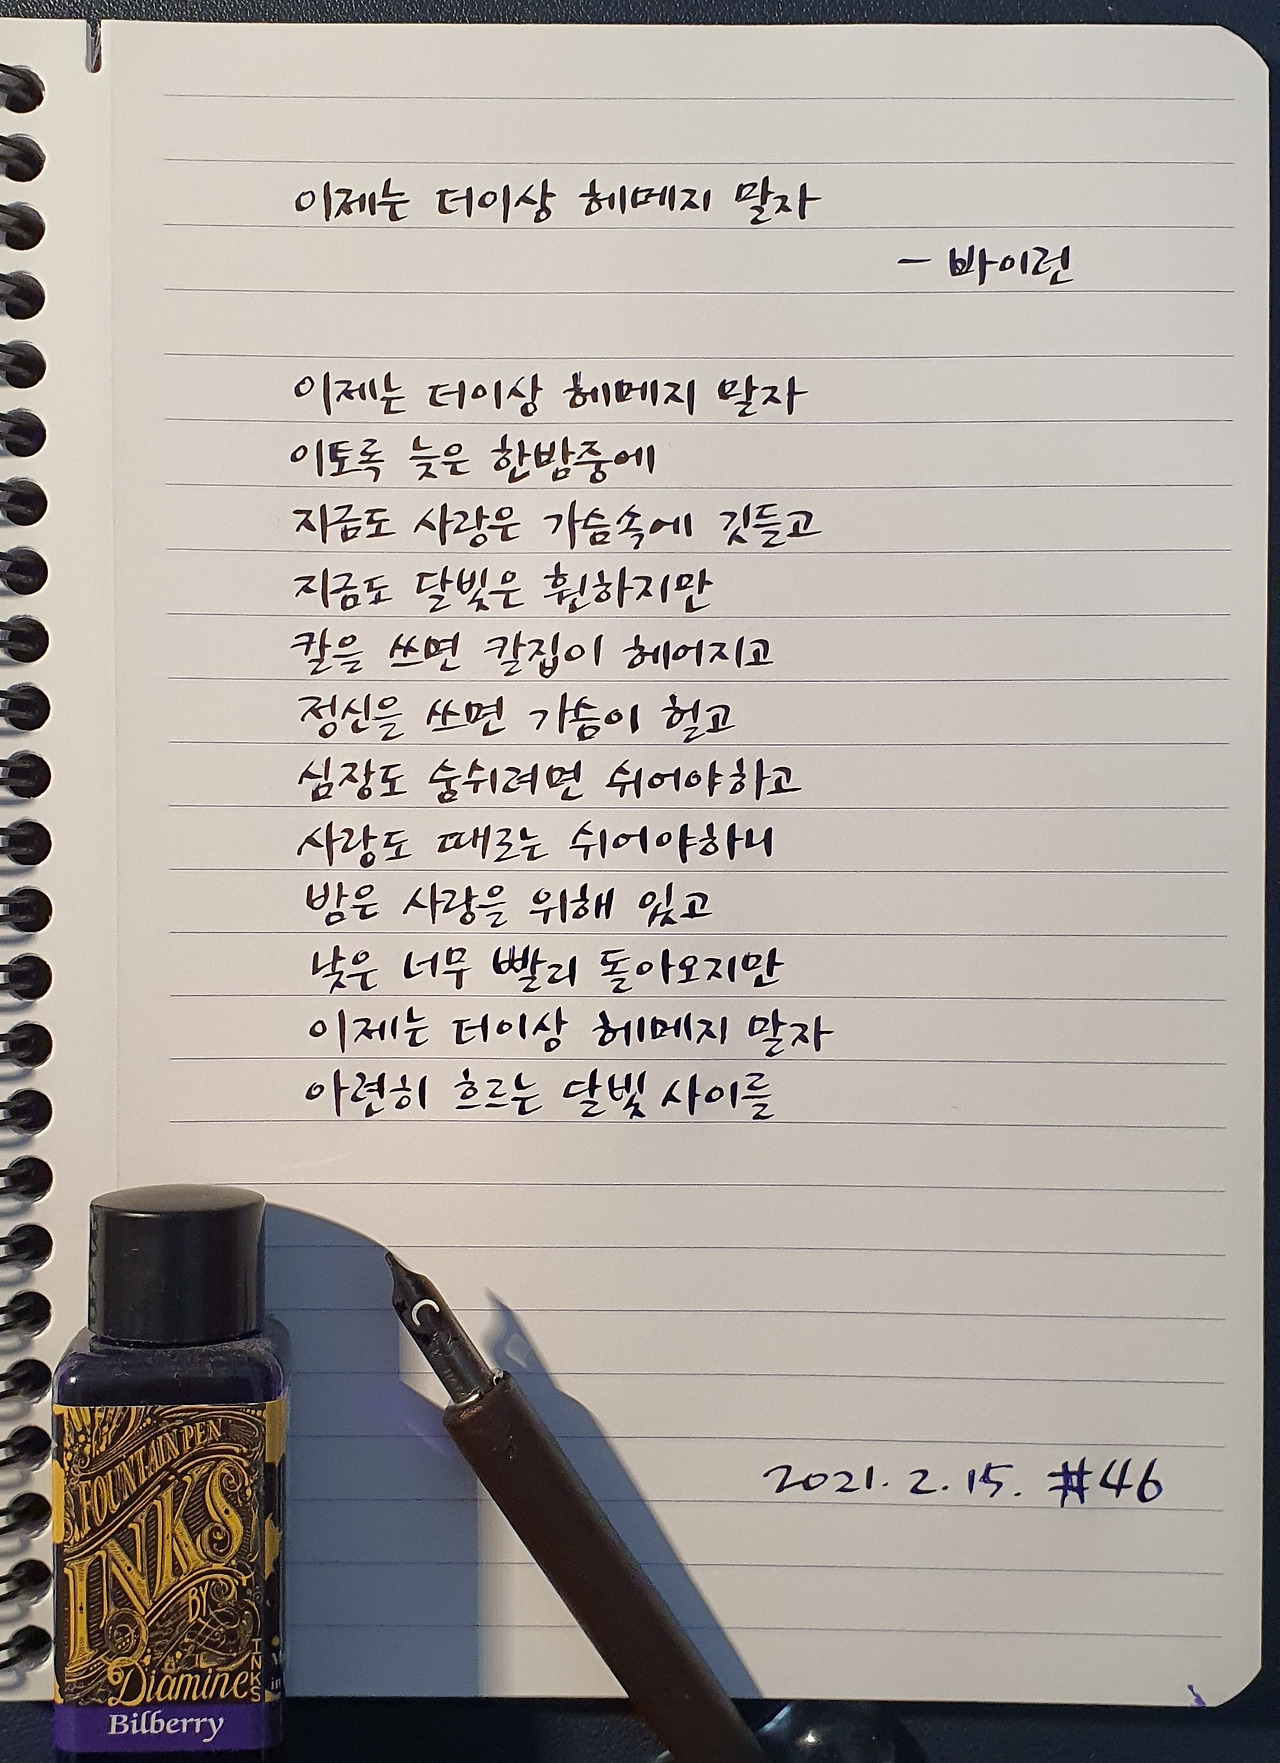 이제는 더이상 헤메지 말자
- 바이런
이제는 더이상 헤메지 말자
이토록 늦은 한밤중에
지금도 사랑은 가슴속에 깃들고
지금도 달빛은 훤하지만
칼을 쓰면 칼집이 헤어지고
정신을 쓰면 가슴이 헐고
심장도 숨쉬려면 쉬어야하고
사랑도 때로는 쉬어야하니
밤은 사랑을 위해 있고
낮은 너무 빨리 돌아오지만
이제는 더이상 헤메지 말자
아련히 흐르는 달빛 사이를
C
FOUNTAIN PEN
INKS
BY
Diamine
INKS
Bilberry
2021. 2. 15. #46